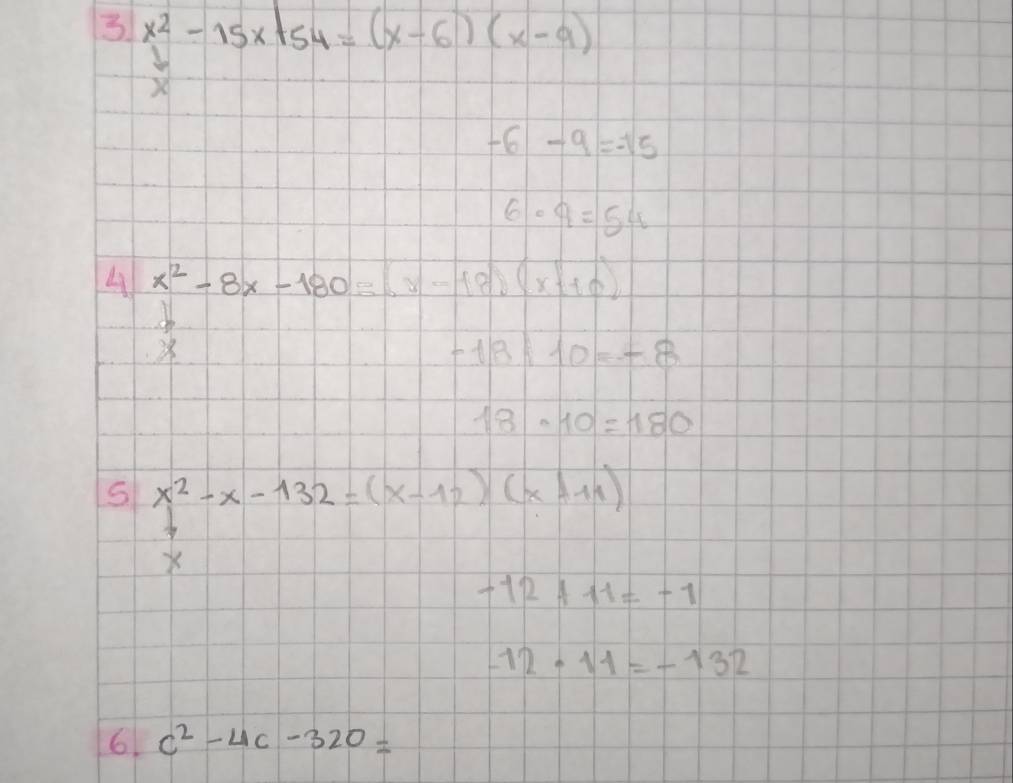 3. x² - 15x + 54 = (x - 6) (x - 9)
x
-6 - 9 = -15
6 · 9 = 54
4 x² - 8x - 180 = (x - 18) (x + 10)
x
-18 + 10 = - 8
18 · 10 = 180
5 x² - x - 132 = (x - 12) (x + 11)
x
-12 + 11 = - 1
-12 · 11 = - 132
6. c² - 4c - 320 =